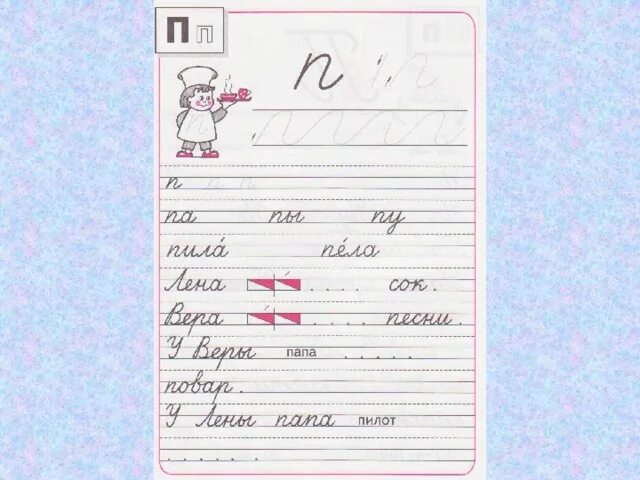 П п
п
п п п
па пы пу
пила́ пе́ла
Лена . . . . сок.
Вера . . . . песни.
У Веры папа . . . . .
повар.
У Лены папа пилот
. . . . . .